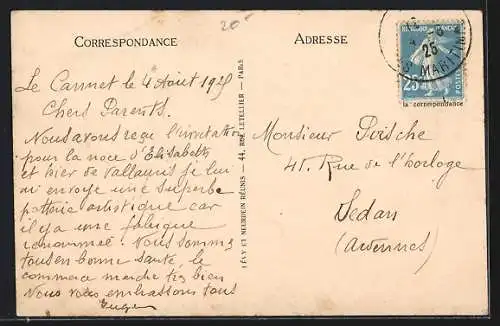 20-
CORRESPONDANCE
ADRESSE
Le Cannet le 4 Aout 1925
Chers Parents.
Nous avons reçu l'invitation
pour la noce d'Elisabeth
et hier de Vallauris je lui
ai envoyé une superbe
potterie artistique car
il y a une fabrique
renommée. Nous sommes
tous en bonne santé, le
commerce marche très bien
Nous vous embrassons tous
LÉVY ET NEURDEIN RÉUNIS — 44, RUE LETELLIER — PARIS
Monsieur
45 Rue de l'horloge
Sedan
(Ardennes)
25
MARITIMES
25
POSTES
la correspondance